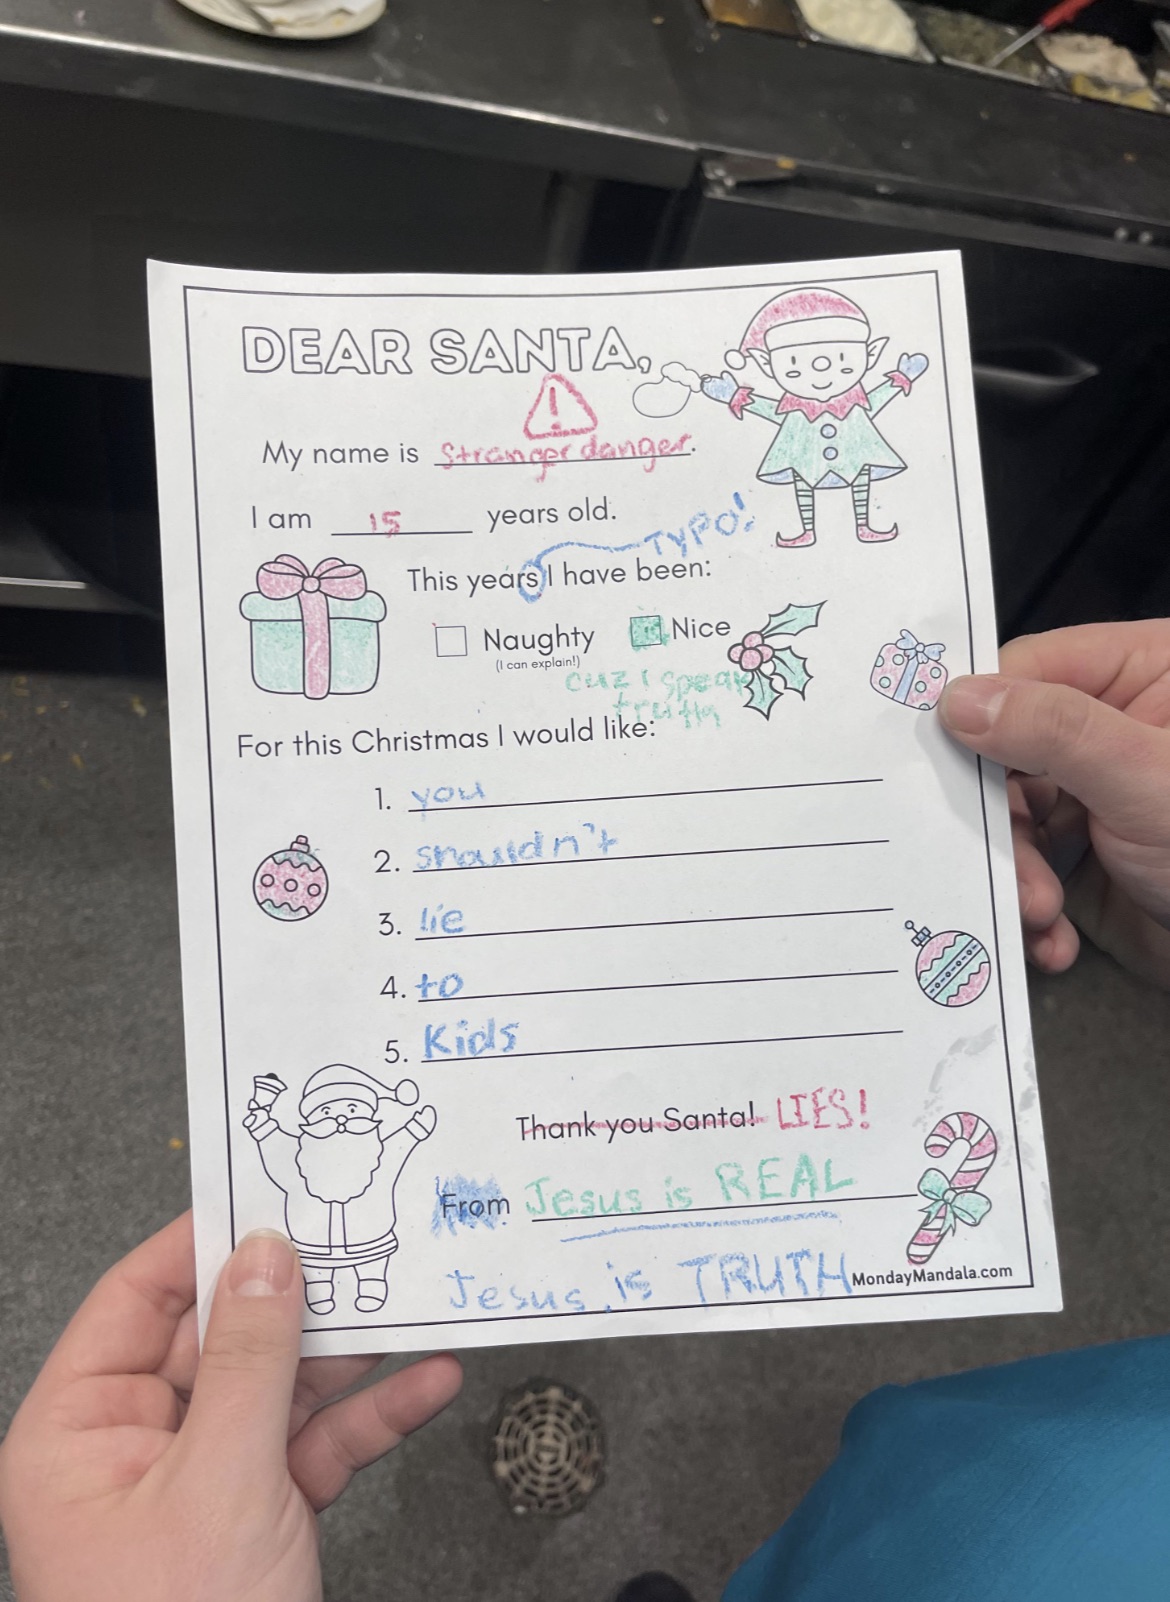 DEAR SANTA,
!
My name is Stranger danger.
I am 15 years old.
TYPO!
This years I have been:
Naughty Nice
(I can explain!)
cuz I speak
truth
For this Christmas I would like:
1. you
2. shouldn't
3. lie
4. to
5. Kids
Thank you Santa! LIES!
From Jesus is REAL
Jesus is TRUTH
MondayMandala.com